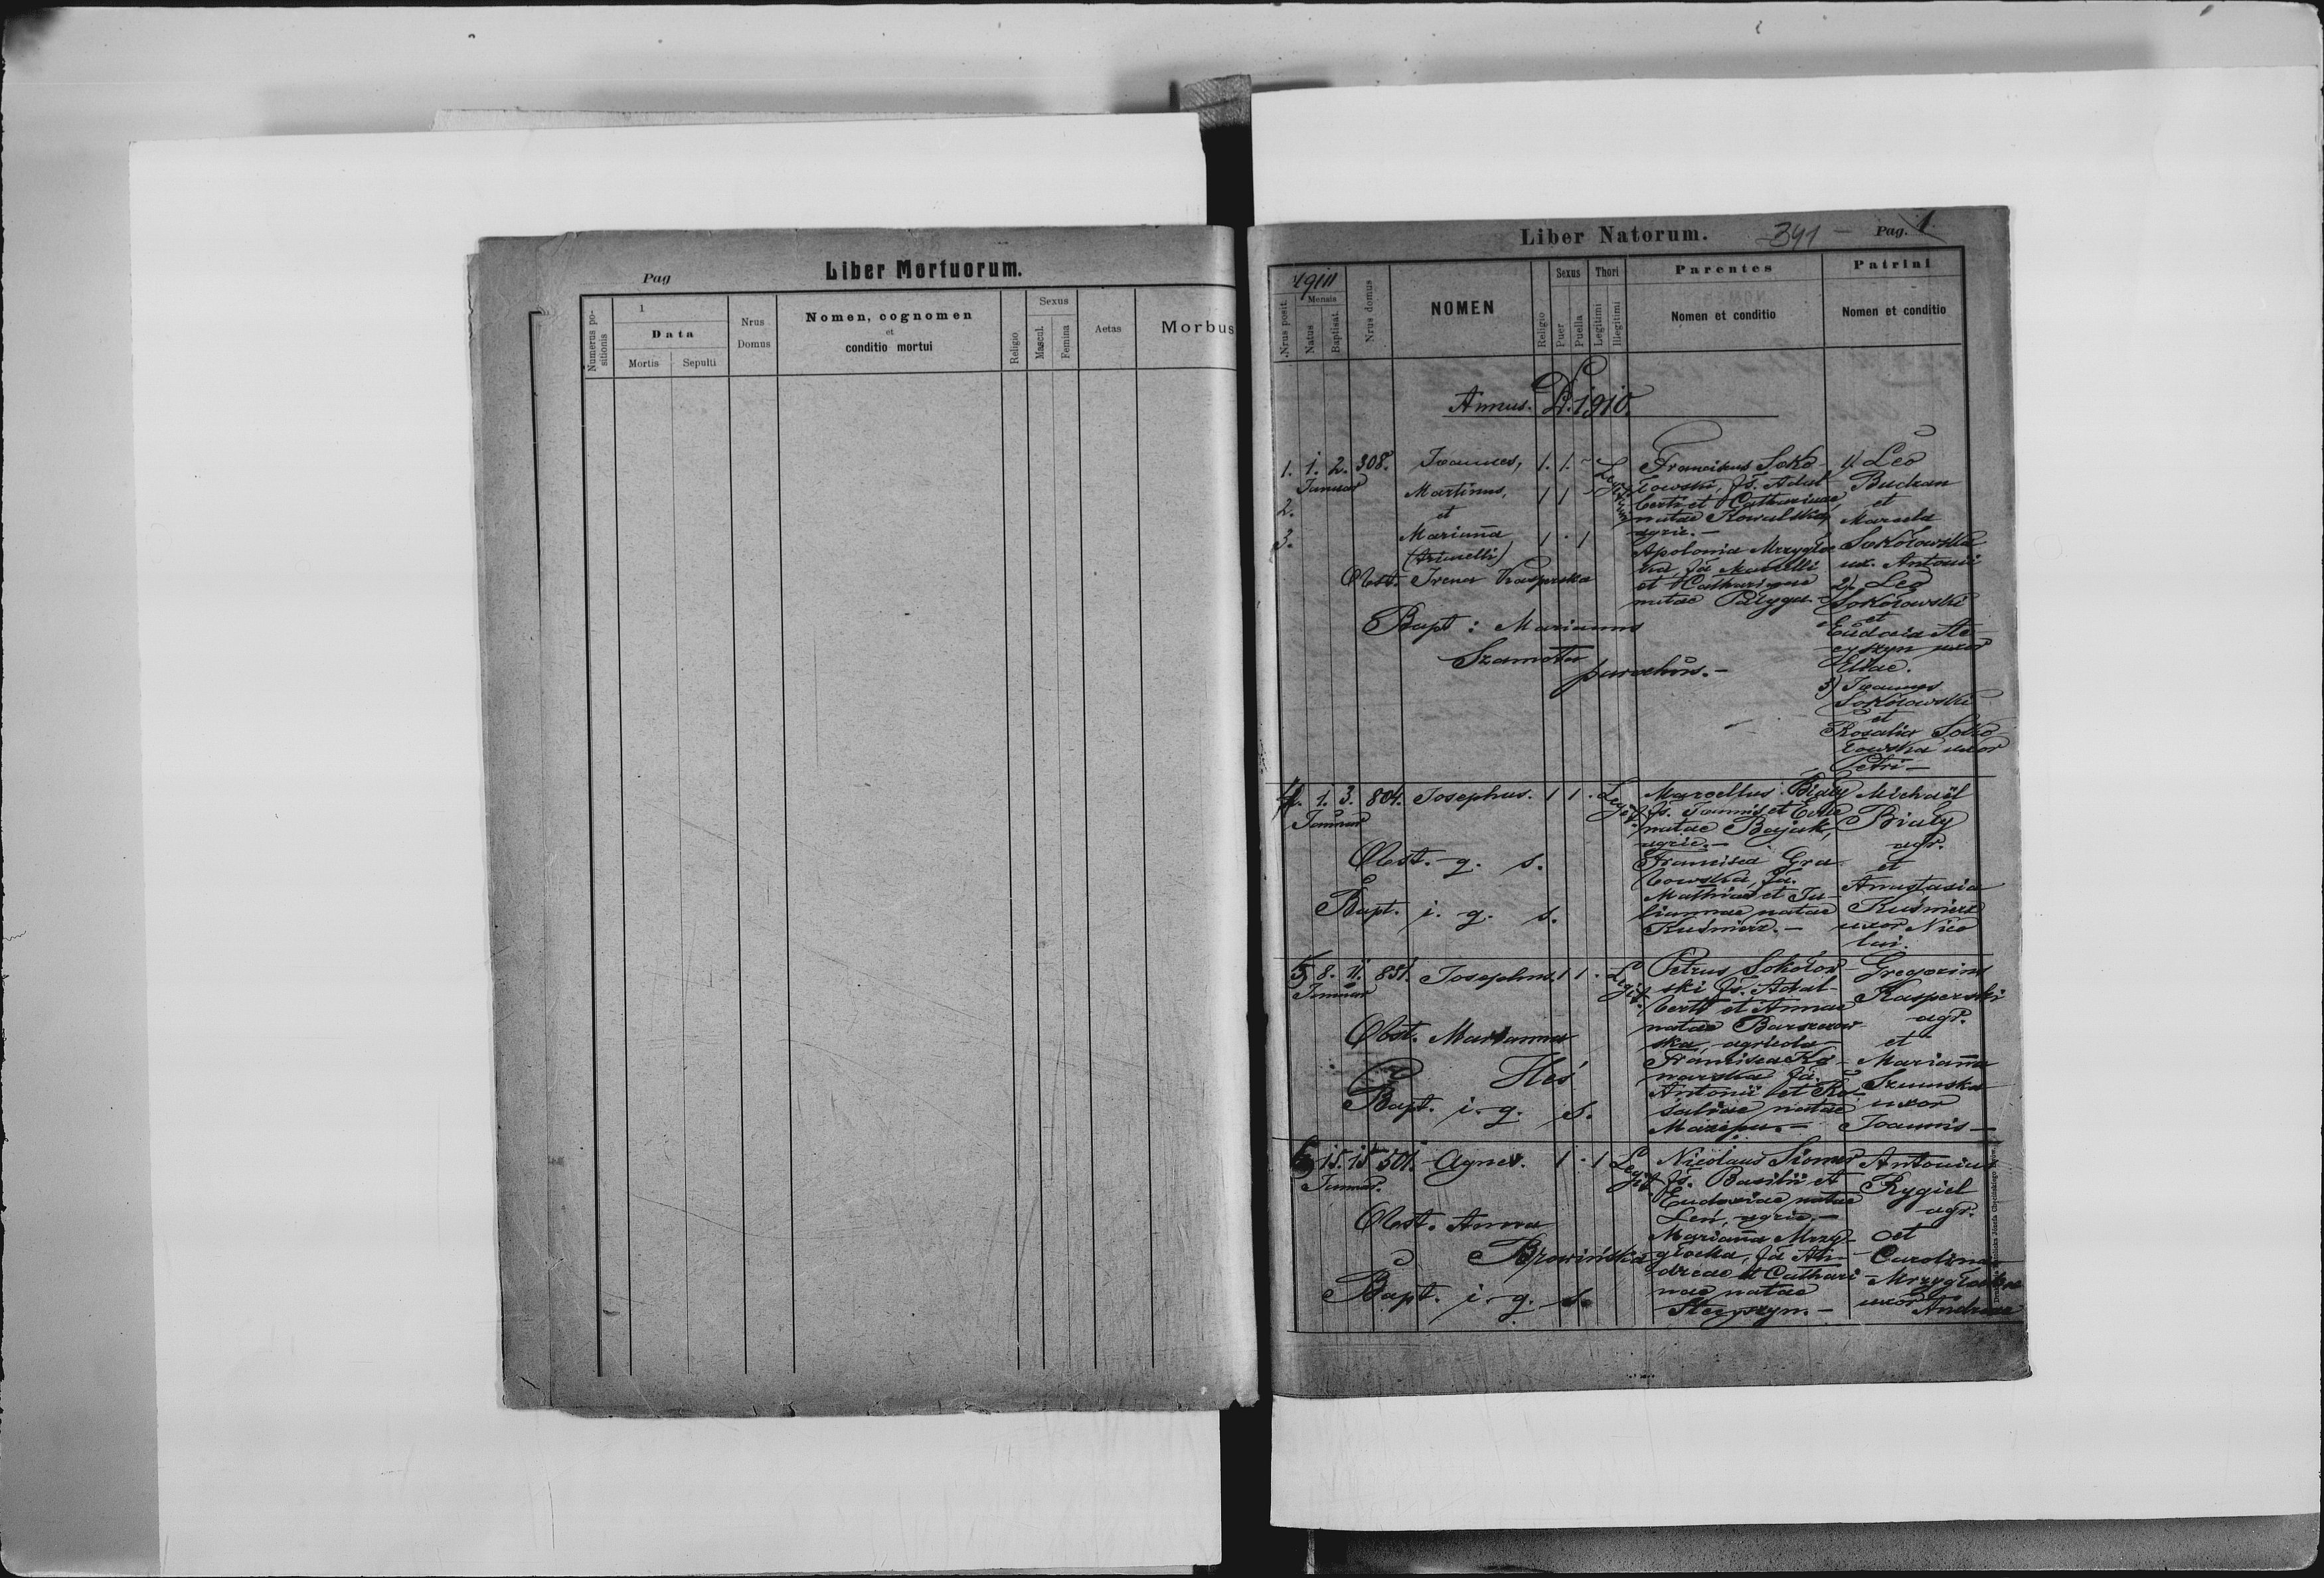 Pag
Liber Mortuorum.
Numerus po-
sitionis
1
Data
Mortis
Sepulti
Nrus
Domus
Nomen, cognomen
et
conditio mortui
Religio
Sexus
Mascul.
Femina
Aetas
Morbus
Liber Natorum.
-341-
Pag. 1
Nrus posit.
1910
Mensis
Natus
Baptisat.
Nrus domus
NOMEN
Religio
Sexus
Puer
Puella
Thori
Legitimi
Illegitimi
Parentes
Nomen et conditio
Patrini
Nomen et conditio
Annus. D. 1910.
1. 1. 2. 308. Joannes, 1. 1. -
Januar
2. Martinus, 1 1 -
et
3. Marianna 1 . 1
(trinelli)
Obst. Irena Kasperska
Bapt: Marianus
Szamota
parochus.-
Legitimi
Franciscus Soko-
łowski, fs. Adal-
berti et Catharinae
natae Kowalska,
agric.-
Apolonia Mrzygło-
cka fa Marcelli
et Catharinae
natae Pałyga
1) Leo
Budzan
et
Marcela
Sokołowska
ux. Antonii
2) Leo
Sokołowski
et
Eudoxia Ste-
cyszyn uxor
Eliae.
3) Joannes
Sokołowski
et
Rosalia Soko-
łowska uxor
Petri-
4. 1. 3. 804. Josephus. 1 1 . Legit.
Januar
Obst. q. s.
Bapt. i. q. s.
Marcellus Biały
fs. Joannis et Evae
natae Bajak,
agric.-
Francisca Gra-
bowska, fa.
Mathiae et Ju-
liannae natae
Kuśnierz.-
Michaël
Biały
agr.
et
Anastasia
Kuśnierz
uxor Nico
lai.
5 8. 11. 851. Josephus. 1 1 . Legit.
Januar
Obst. Marianna
Heś
Bapt. i. q. s.
Petrus Sokołow-
ski fs. Adal-
berti et Annae
natae Barszczow-
ska agricola-
Francisca Ko-
narska fa.
Antonii et Ro-
saliae natae
Mazepa.-
Gregorius
Kasperski
agr.
et
Marianna
Szumska
uxor
Joannis-
6 15. 15 501. Agnes. 1 . 1 Legit
Januar.
Obst. Anna
Browińska
Bapt. i. q. s.
Nicolaus Siomar
fs. Basilii et
Eudoxiae natae
Leń, agric.-
Marianna Mrzy-
głocka, fa An-
dreae et Cathari-
nae natae
Stecyszyn.-
Antonius
Rygiel
agr.
et
Carolina
Mrzygłocka
uxor Andreae